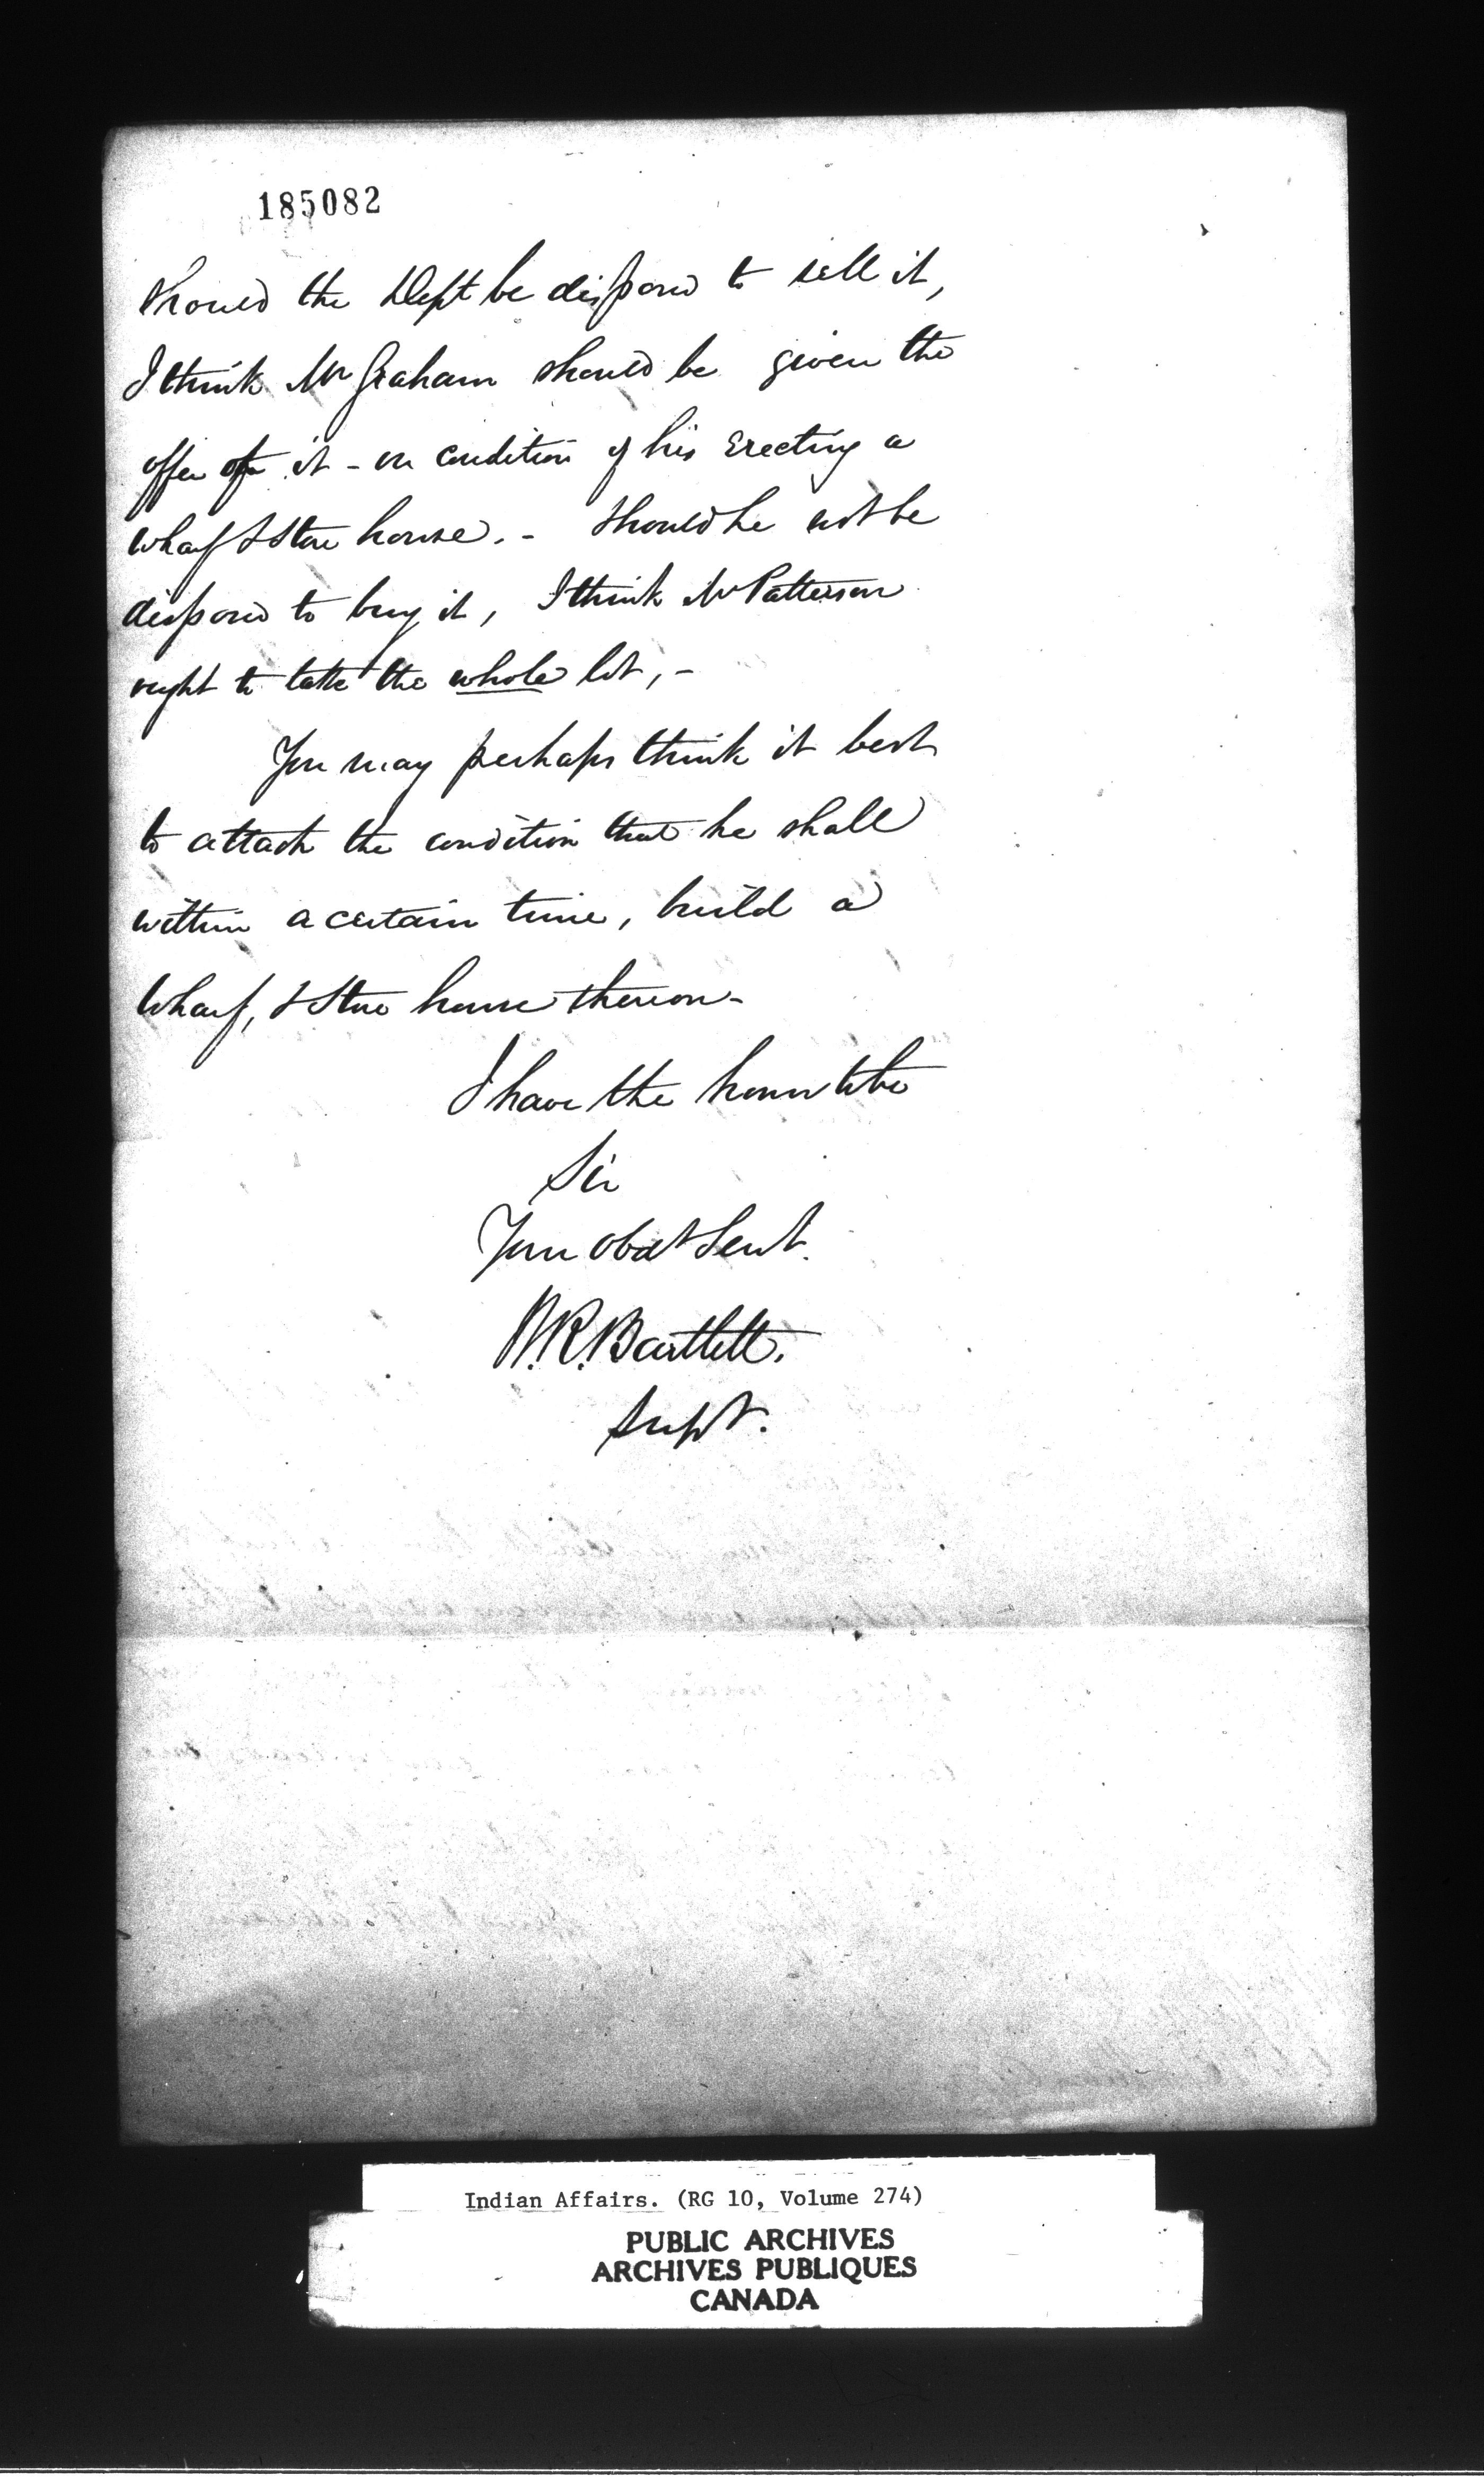 185082
Should the Dept be disposed to sell it,
I think Mr Graham should be given the
offer of it - on condition of his Erecting a
wharf & Store house. - Should he not be
disposed to buy it, I think Mr Patterson
ought to take the whole lot, -
You may perhaps think it best
to attach the condition that he shall
within a certain time, build a
Wharf, & Store house thereon -
I have the honor to be
Sir
Your obdt Servt.
W.R. Bartlett.
Supt.
Indian Affairs. (RG 10, Volume 274)
PUBLIC ARCHIVES
ARCHIVES PUBLIQUES
CANADA